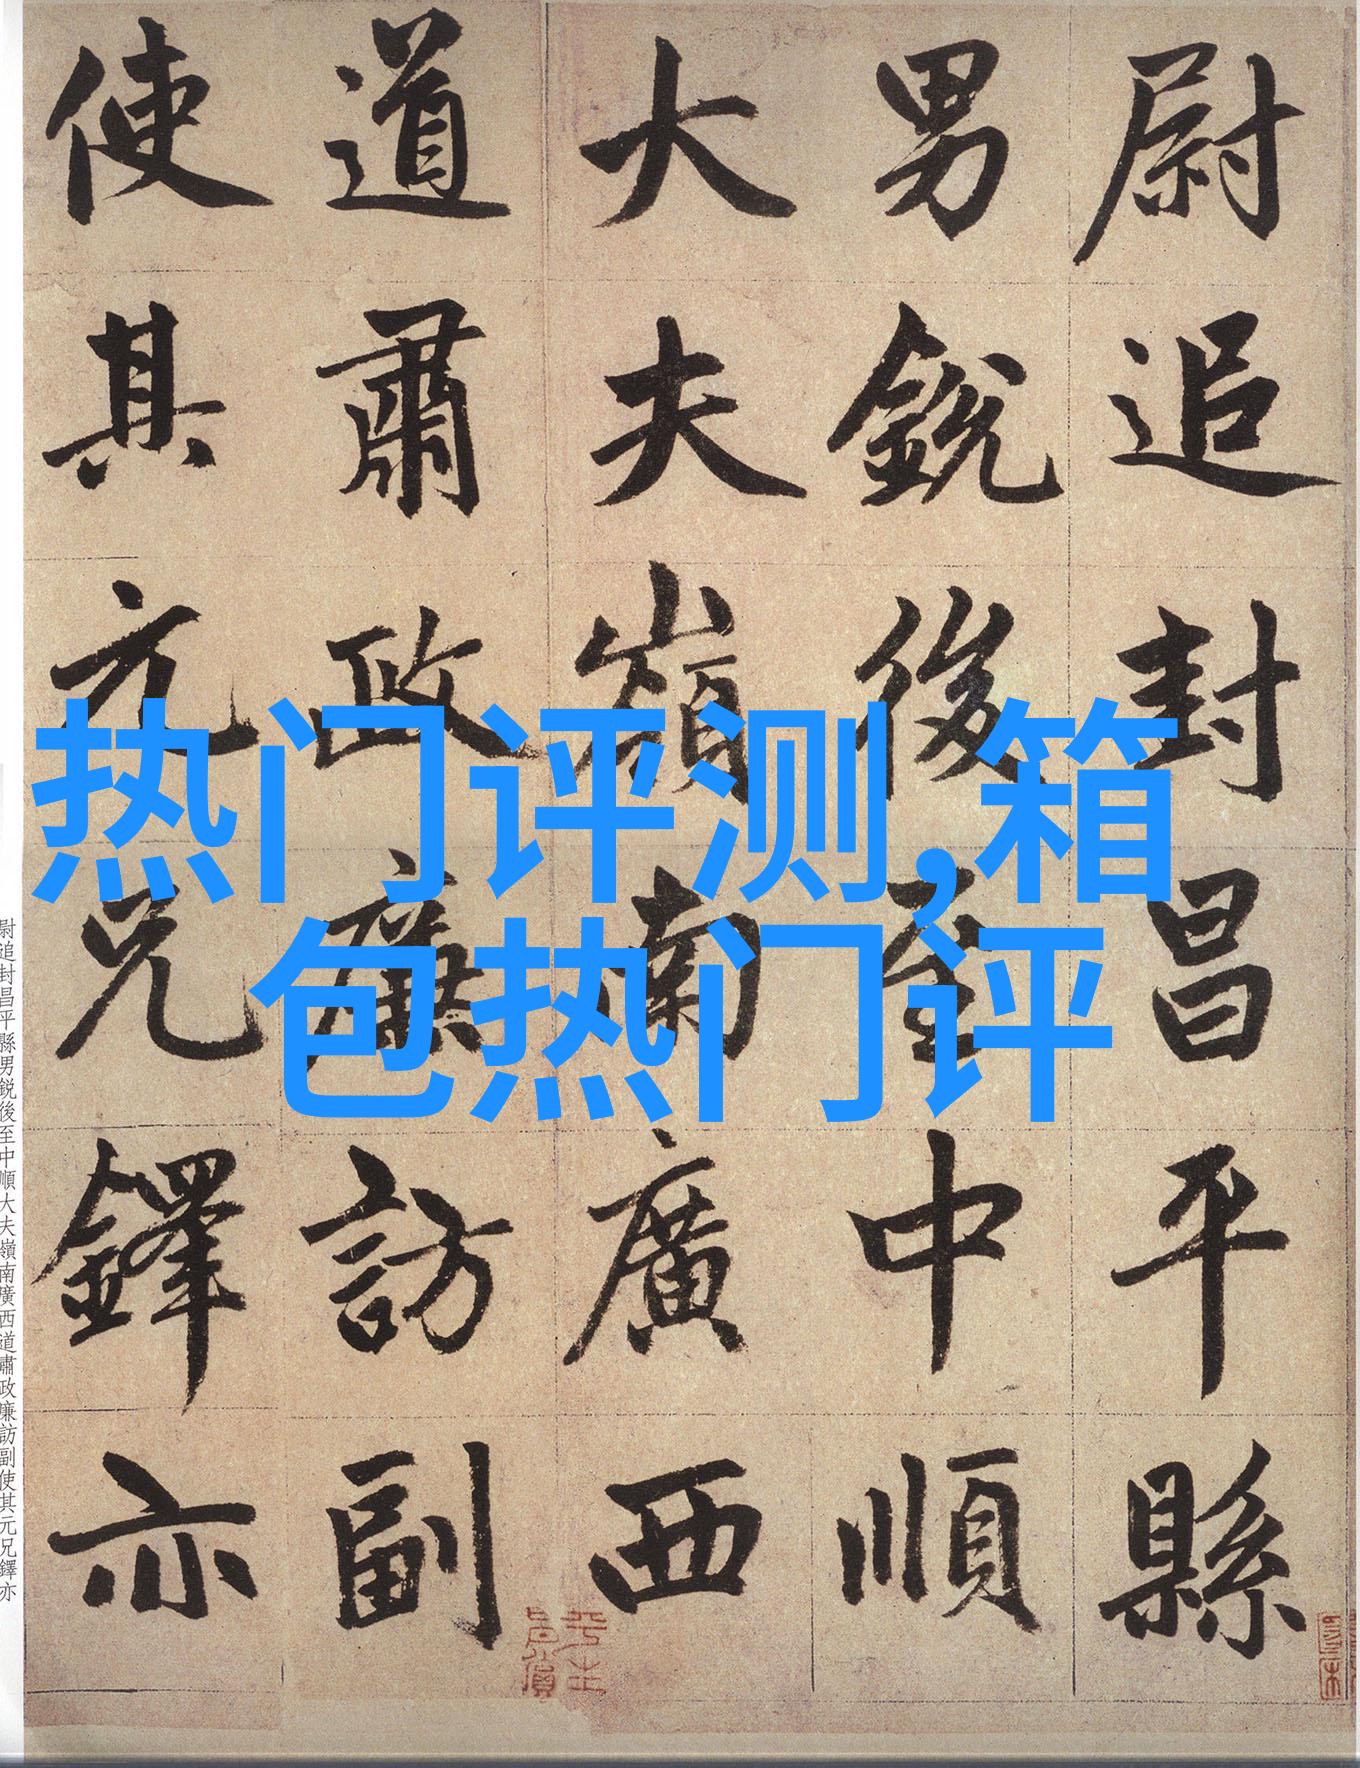 尉追封昌平縣
男銳後至中順
大夫嶺南廣西
道肅政廉訪副
使其元兄鐸亦
热门评测,箱
包热门评
尉追封昌平縣男銳後至中順大夫嶺南廣西道肅政廉訪副使其元兄鐸亦